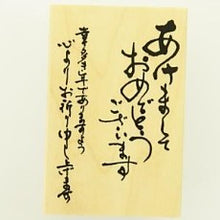 あけまして
おめでとう
ございます
幸多き年でありますよう
心よりお祈り申し上げます